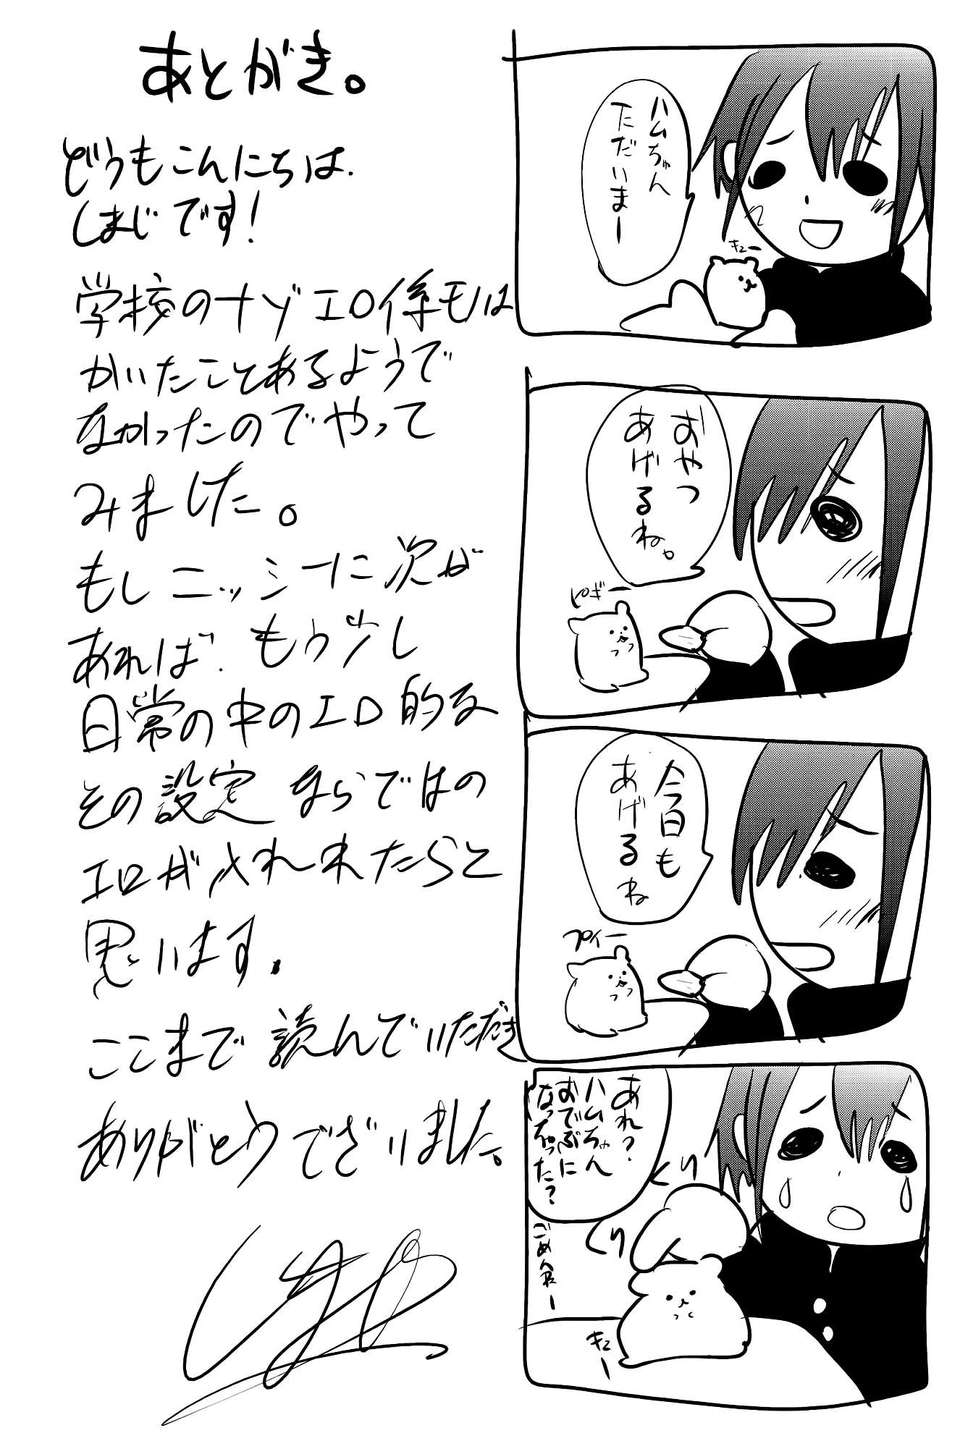 あとがき。
どうもこんにちは
しまじです！
学校のナゾエロ係モノは
かいたことあるようで
なかったのでやって
みました。
もしニッシーに次が
あれば もう少し
日常の中のエロ的な
その設定ならではの
エロがされれたらと
思います。
ここまで読んでいただき
ありがとうございました。
ハムちゃん
ただいまー
キュー
おやつ
あげるね。
ピギー
今日も
あげるね
プイー
あれ？
ハムちゃん
おでぶに
なっちゃった？
くり
くり
ごめんねー
キュー